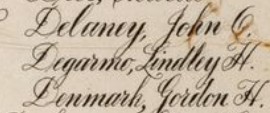 Delaney, John C.
Degarmo, Lindley H.
Denmark, Gordon H.